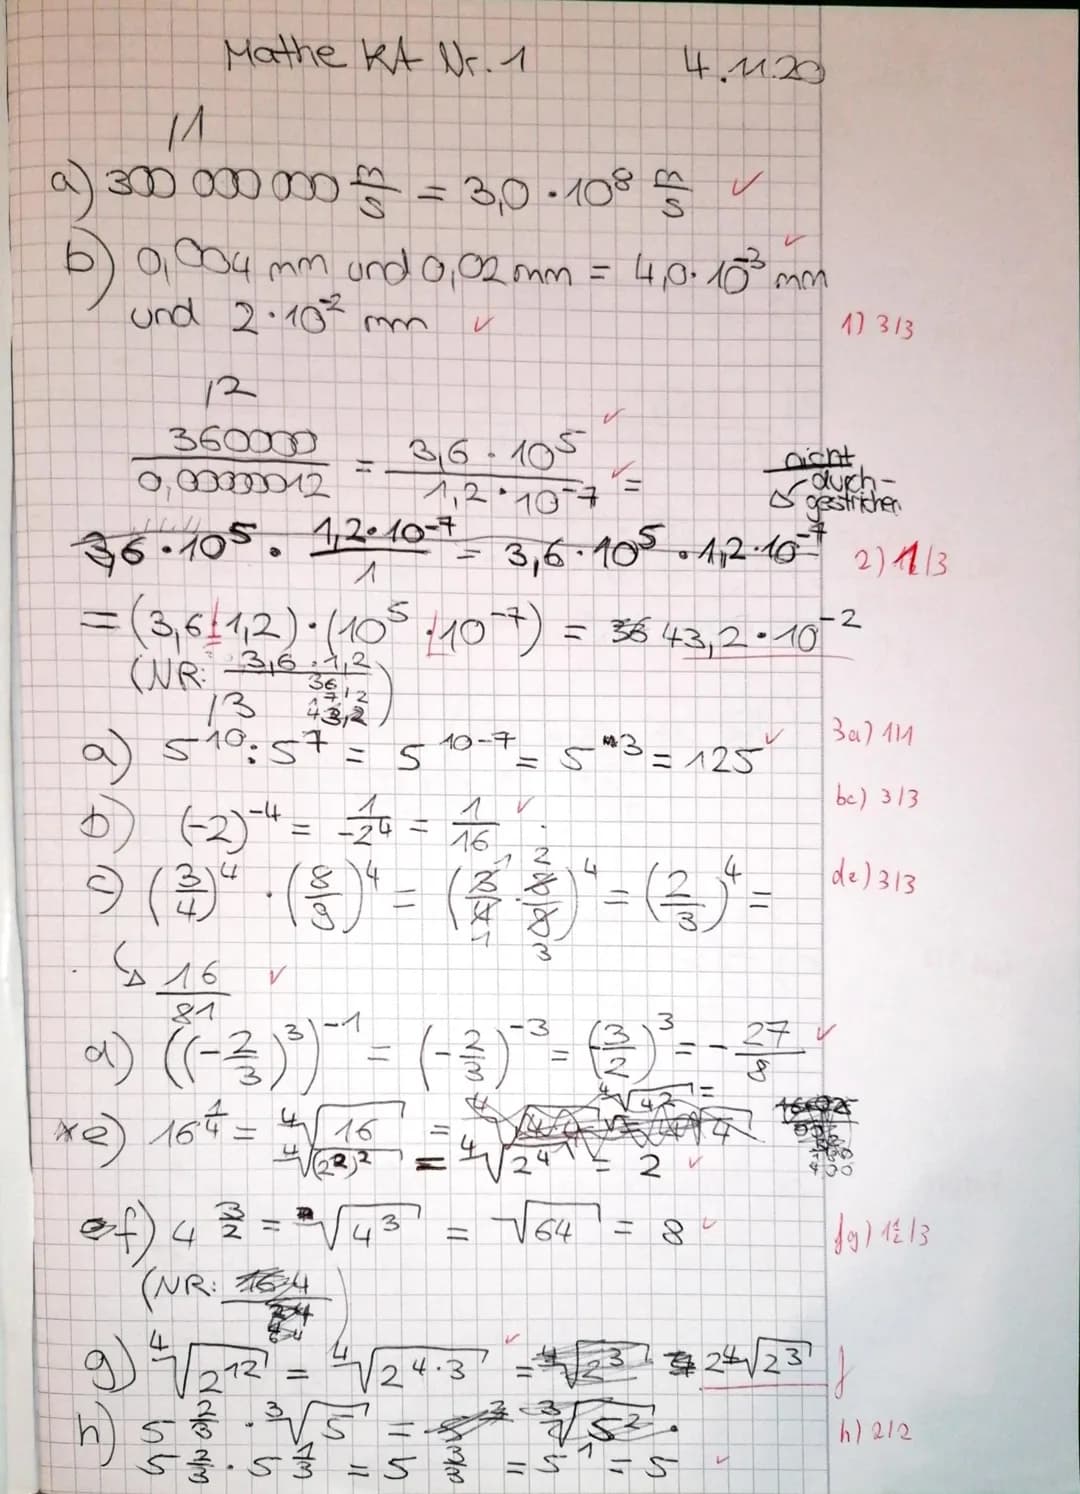 Mathe KA Nr. 1 4.11.20
11
a) 300 000 000 m/s = 3,0 · 10⁸ m/s ✓
b) 0,004 mm und 0,02 mm = 4,0 · 10⁻³ mm ✓
und 2 · 10⁻² mm ✓ 1) 3/3
12
360000/0,00000012 = 3,6 · 10⁵/1,2 · 10⁻⁷ = ✓ ✓
nicht
durch-
gestrichen
3,6 · 10⁵ · 1,2 · 10⁻⁷/1 = 3,6 · 10⁵ · 1,2 · 10⁻⁷ 2) 1½/3
= (3,6 · 1,2) · (10⁵ · 10⁻⁷) = 43,2 · 10⁻²
(NR: 3,6 · 1,2
36
7,2
43,2)
13
a) 5¹⁰ : 5⁷ = 5¹⁰⁻⁷ = 5³ = 125 ✓ 3a) 1/1
b) (-2)⁻⁴ = 1/-2⁴ = 1/16 ✓ bc) 3/3
c) (3/4)⁴ · (8/9)⁴ = (3/4 · 8/9)⁴ = (2/3)⁴ = de) 3/3
↳ 16/81 ✓
d) ((-2/3)³)⁻¹ = (-2/3)⁻³ = (-3/2)³ = -27/8 ✓
*e) 16^¼ = ⁴√16 = ⁴√4² =
⁴√(2²)² = ⁴√2⁴ = 2 ✓
f) 4^(3/2) = √4³ = √64 = 8 ✓ fg) 1½/3
(NR: )
g) ⁴√2¹² = ⁴√2⁴·³ ✓ = 2⁴√2³ f
h) 5^(2/3) · ³√5 = h) 2/2
5^(2/3) · 5^(1/3) = 5^(3/3) = 5¹ = 5 ✓